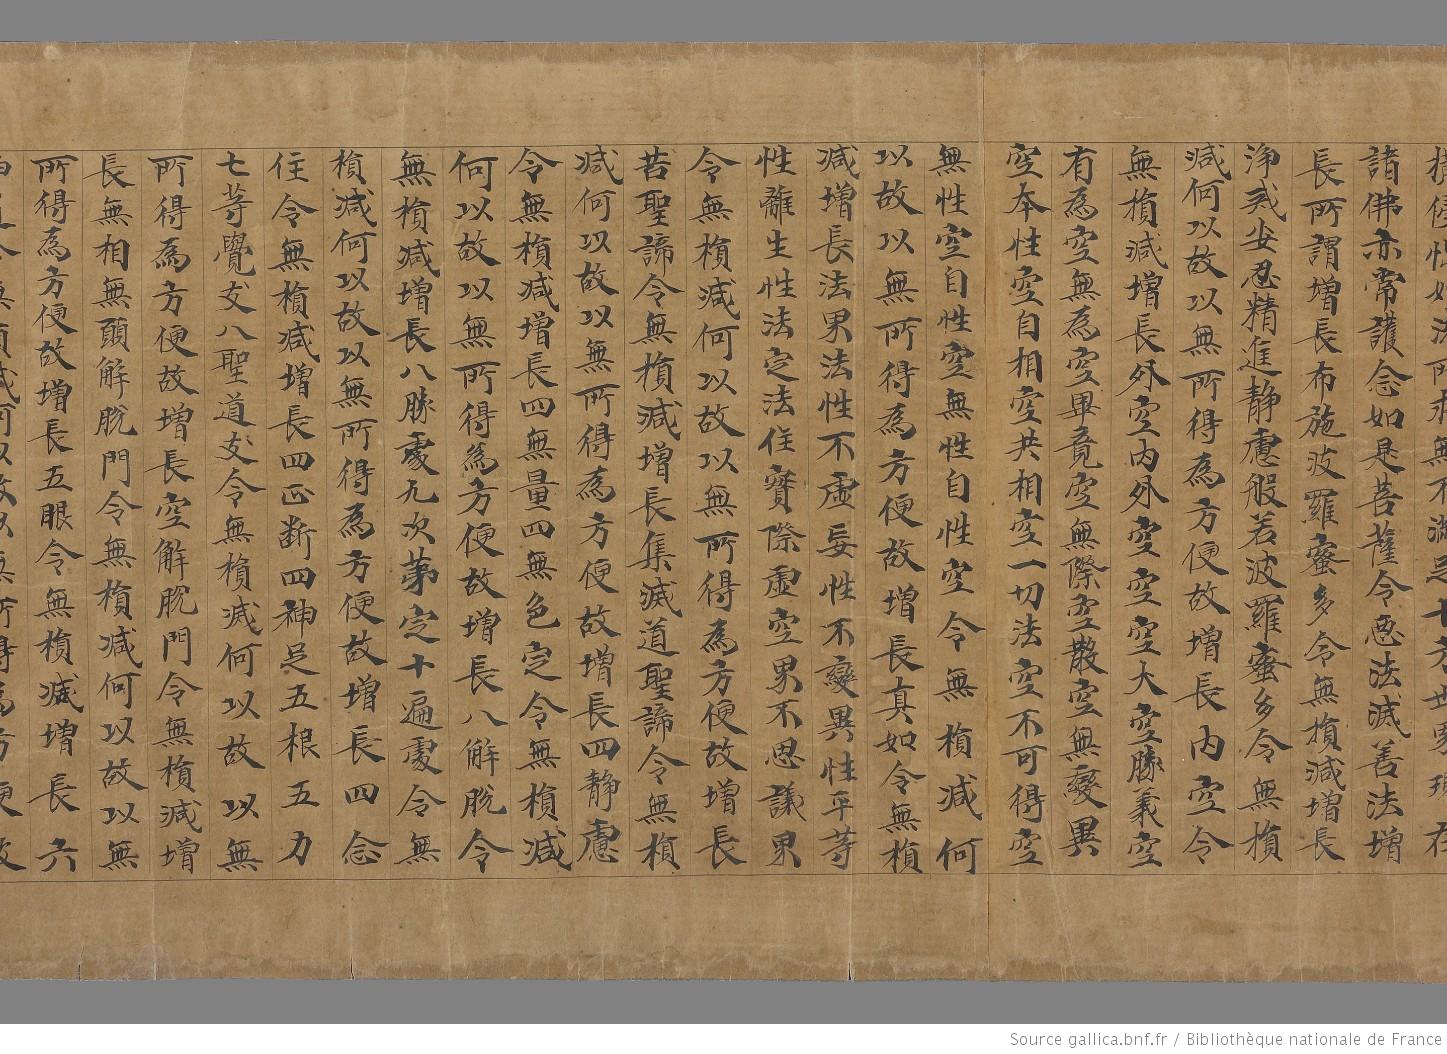 諸佛亦常護念如是菩薩令惡法減善法增
長所謂增長布施波羅蜜多令無損減增長
淨戒安忍精進靜慮般若波羅蜜多令無損
減何以故以無所得為方便故增長內空令
無損減增長外空內外空空空大空勝義空
有為空無為空畢竟空無際空散空無變異
空本性空自相空共相空一切法空不可得空
無性空自性空無性自性空令無損減何
以故以無所得為方便故增長真如令無損
減增長法界法性不虛妄性不變異性平等
性離生性法定法住實際虛空界不思議界
令無損減何以故以無所得為方便故增長
苦聖諦令無損減增長集滅道聖諦令無損
減何以故以無所得為方便故增長四靜慮
令無損減增長四無量四無色定令無損減
何以故以無所得為方便故增長八解脫令
無損減增長八勝處九次第定十遍處令無
損減何以故以無所得為方便故增長四念
住令無損減增長四正斷四神足五根五力
七等覺支八聖道支令無損減何以故以無
所得為方便故增長空解脫門令無損減增
長無相無願解脫門令無損減何以故以無
所得為方便故增長五眼令無損減增長六
Source gallica.bnf.fr / Bibliothèque nationale de France